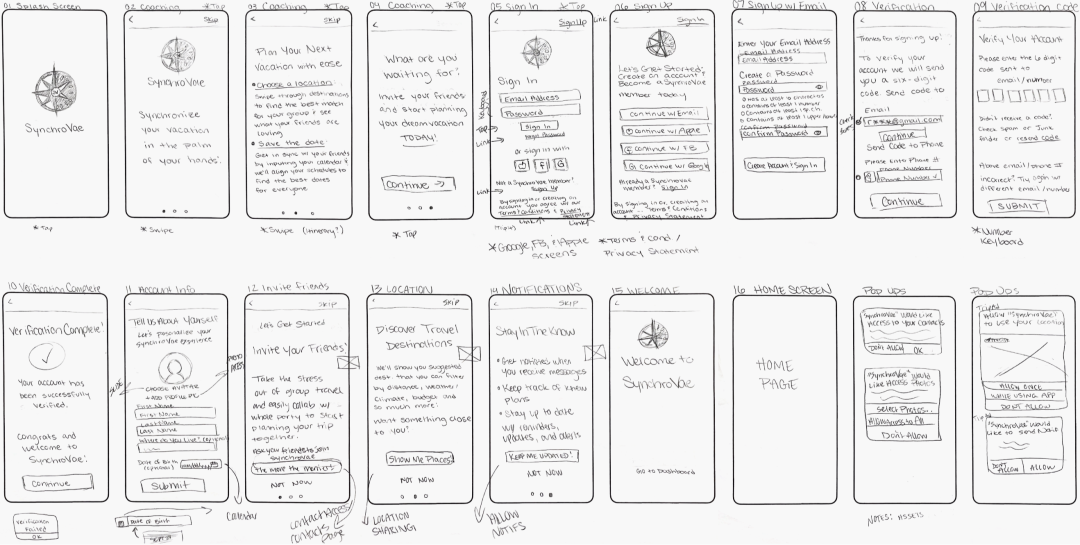 01 Splash Screen
SynchroVae
*Tap
02 Coaching *Tap
Skip
SynchroVae
Synchronize
your vacation
in the palm
of your hands!
*Swipe
03 Coaching *Tap
Skip
Plan Your Next
Vacation with ease
• Choose a location:
Swipe through destinations
to find the best match
for your group & see
what your friends are
loving
• Save the date
Get in sync w/ your friends
by inputting your calendar &
we'll align your schedules to
find the best dates
for everyone
*Swipe (itinerary?)
04 Coaching *Tap
What are you
waiting for?
Invite your friends
and start planning
your dream vacation
TODAY!
Continue →
*Tap
05 Sign In *Tap
Sign Up
Link
Sign In
Keyboard
Email Address
Password
Tap
Sign In
Link
or sign in with
f G
Not a SynchroVae Member?
Link
Sign Up
By signing in or creating an
account you agree w/ our
Terms & Conditions & Privacy
Statement
Link
*Google, FB, & Apple
screens
06 Sign Up
Sign In
Let's Get Started!
Create an account &
Become a SynchroVae
member today
Continue w/ Email
Continue w/ Apple
Continue w/ FB
G Continue w/ Google
Already a SynchroVae
Member? Sign In
By signing in or, creating an
account... Terms & Conditions
& Privacy Statement
*Terms & Cond /
Privacy Statement
07 Sign Up w/ Email
Enter Your Email Address
Email Address
Email Address
Create a Password
Password
Password
Confirm Password
Confirm Password
Create Account & Sign In
08 Verification
Thanks for signing up!
To verify your
account we will send
you a six-digit
code Send code to
Email
Continue
Send Code to Phone
Please Enter Phone #
Phone Number
Phone Number
Continue
09 Verification Code
Verify Your Account
Please enter the 6 digit
code sent to
email / number
Didn't receive a code?
Check Spam or Junk
folder or resend code.
Above email/phone #
incorrect? Try again w/
different email/number
SUBMIT
*Number
Keyboard
10 Verification Complete
Verification Complete!
Your account has
been successfully
verified.
Congrats and
welcome to
SynchroVae!
Continue
Verification
Failed
OK
11 Account Info
Tell Us About Yourself
Let's personalize your
SynchroVae experience
Photo
Access
Choose Avatar
+ Add Profile Pic
First Name
First Name
Last Name
Last Name
Where do you live? (optional)
Date of Birth
(optional)
Submit
Calendar
Date of Birth
12 Invite Friends
Skip
Let's Get Started
Invite Your Friends!
Take the stress
out of group travel
and easily collab w/
whole party to start
planning your trip
together.
Ask your friends to join
SynchroVae
The more the merrier!
NOT NOW
Contact Access
Contacts
page
13 LOCATION
SKIP
Discover Travel
Destinations
We'll show you suggested
dest. that you can filter
by distance, weather/
climate, budget and
so much more!
Want something close
to you?
Show Me Places!
NOT NOW
LOCATION
SHARING!
14 NOTIFICATIONS
SKIP
Stay In The Know
• Get notified when
you receive messages
• Keep track of new
plans
• Stay up to date
w/ reminders,
updates, and alerts
KEEP ME UPDATED!
NOT NOW
ALLOW
NOTIFS
15 WELCOME
Welcome to
SynchroVae
Go to Dashboard
16 HOME SCREEN
HOME
PAGE
Pop Ups
"SynchroVae" Would Like
Access to Your Contacts
DON'T ALLOW OK
"SynchroVae" Would
Like Access Photos
Select Photos..
Allow Access to All
Don't Allow
NOTES: ASSETS
Pop Ups
Allow "SynchroVae"
to use your location
ALLOW ONCE
WHILE USING APP
DON'T ALLOW
"SynchroVae" Would
Like to send Notif
DON'T
ALLOW
ALLOW